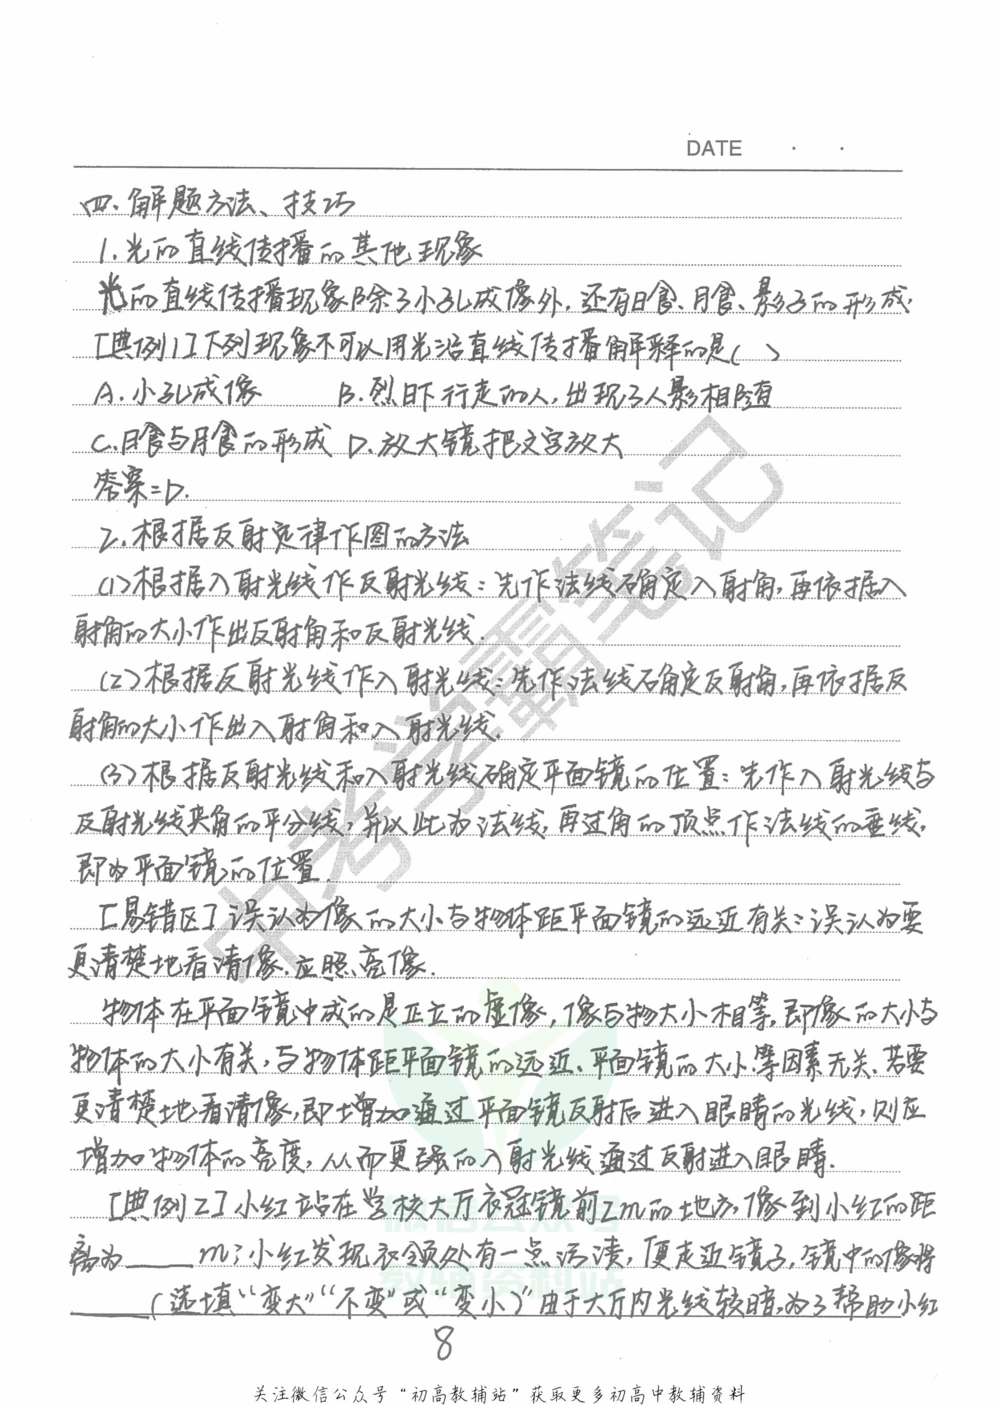 DATE · ·
四、解题方法、技巧
1.光的直线传播的其他现象
光的直线传播现象除了小孔成像外,还有日食、月食、影子的形成.
[典例1]下列现象不可以用光沿直线传播解释的是( )
A.小孔成像 B.烈日下行走的人,出现了人影相随
C.日食与月食的形成 D.放大镜把文字放大
答案:D.
2.根据反射定律作图的方法
(1)根据入射光线作反射光线:先作法线确定入射角,再依据入
射角的大小作出反射角和反射光线.
(2)根据反射光线作入射光线:先作法线确定反射角,再依据反
射角的大小作出入射角和入射光线.
(3)根据反射光线和入射光线确定平面镜的位置:先作入射光线与
反射光线夹角的平分线,并以此为法线,再过角的顶点作法线的垂线,
即为平面镜的位置.
[易错区]误认为像的大小与物体距平面镜的远近有关:误认为要
更清楚地看清像,应照亮像.
物体在平面镜中成的是正立的虚像,像与物大小相等,即像的大小与
物体的大小有关,与物体距平面镜的远近、平面镜的大小等因素无关.若要
更清楚地看清像,即增加通过平面镜反射后进入眼睛的光线,则应
增加物体的亮度,从而更强的入射光线通过反射进入眼睛.
[典例2]小红站在学校大厅衣冠镜前2m的地方,像到小红的距
离为____m;小红发现衣领处有一点污渍,便走近镜子,镜中的像将
____(选填“变大”“不变”或“变小”)由于大厅内光线较暗,为了帮助小红
8
关注微信公众号“初高教辅站”获取更多初高中教辅资料
中考学霸笔记
微信公众号
教辅资料站